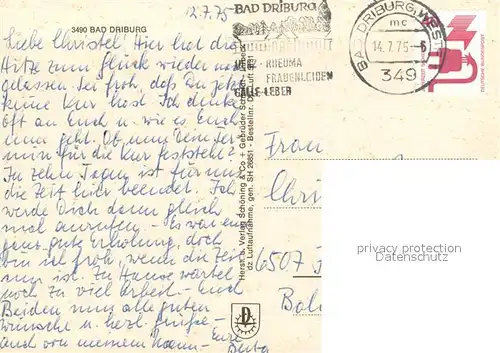 12.7.75
3490 BAD DRIBURG
Liebe Christel! Hier hat die
Hitze zum Glück wieder nach-
gelassen. Sei froh, daß Du jetzt
keine Kur hast. Ich denke
oft an Euch u. wie es Euch
nun geht. Ob nun Dein Ter-
min für die Kur feststeht?
In zehn Tagen ist für uns
die Zeit hier beendet. Ich
werde Dich dann gleich
mal anrufen. – Es war eine
ganz gute Erholung, doch
bin ich froh, wenn die Zeit
um ist. Zu Hause wartet
noch zu viel Arbeit – Euch
Beiden nun alle guten
Wünsche u. herzl. Grüße –
auch von meinem Mann – Eure
Berta
BAD DRIBURG
RHEUMA
FRAUENLEIDEN
GALLE-LEBER
BAD DRIBURG, WESTF 1
mc
14.7.75-6
349
DEUTSCHE BUNDESPOST
Herst. u. Verlag Schöning & Co + Gebrüder Schmidt
dz Luftaufnahme, gen. SH 26/51 - Bestellnr.
Frau
6507
privacy protection
© ansichtskartenhandel.de